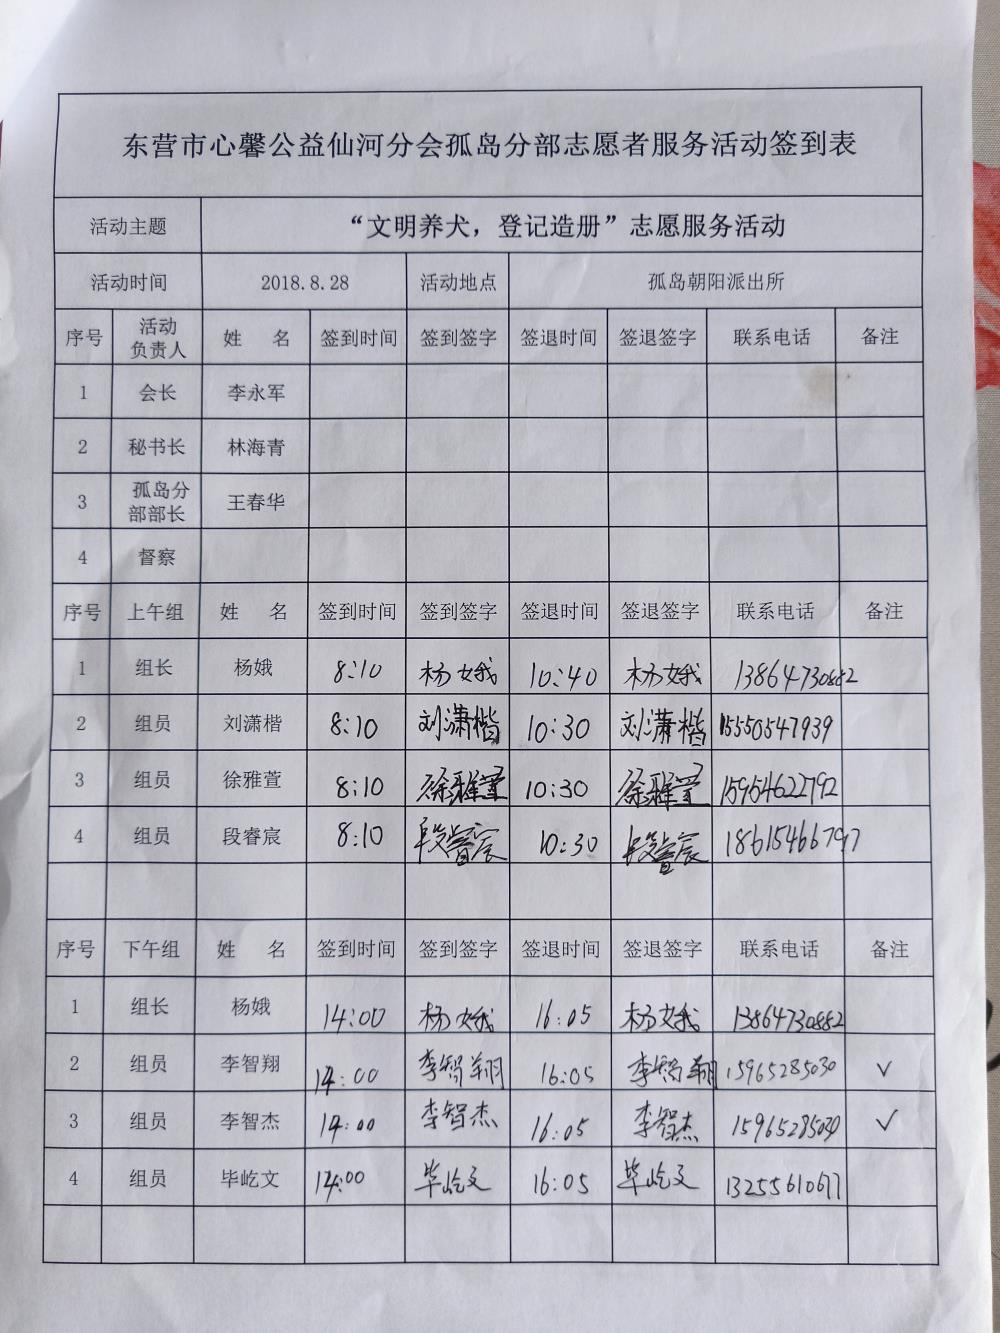 东营市心馨公益仙河分会孤岛分部志愿者服务活动签到表
活动主题 “文明养犬，登记造册”志愿服务活动
活动时间 2018.8.28 活动地点 孤岛朝阳派出所
序号 活动负责人 姓 名 签到时间 签到签字 签退时间 签退签字 联系电话 备注
1 会长 李永军
2 秘书长 林海青
3 孤岛分部部长 王春华
4 督察
序号 上午组 姓 名 签到时间 签到签字 签退时间 签退签字 联系电话 备注
1 组长 杨娥 8:10 杨娥 10:40 杨娥 13864730882
2 组员 刘潇楷 8:10 刘潇楷 10:30 刘潇楷 15550547939
3 组员 徐雅萱 8:10 徐雅萱 10:30 徐雅萱 15954622792
4 组员 段睿宸 8:10 段睿宸 10:30 段睿宸 18615466797
序号 下午组 姓 名 签到时间 签到签字 签退时间 签退签字 联系电话 备注
1 组长 杨娥 14:00 杨娥 16:05 杨娥 13864730882
2 组员 李智翔 14:00 李智翔 16:05 李智翔 15965285030 ✓
3 组员 李智杰 14:00 李智杰 16:05 李智杰 15965285030 ✓
4 组员 毕屹文 14:00 毕屹文 16:05 毕屹文 13255610677